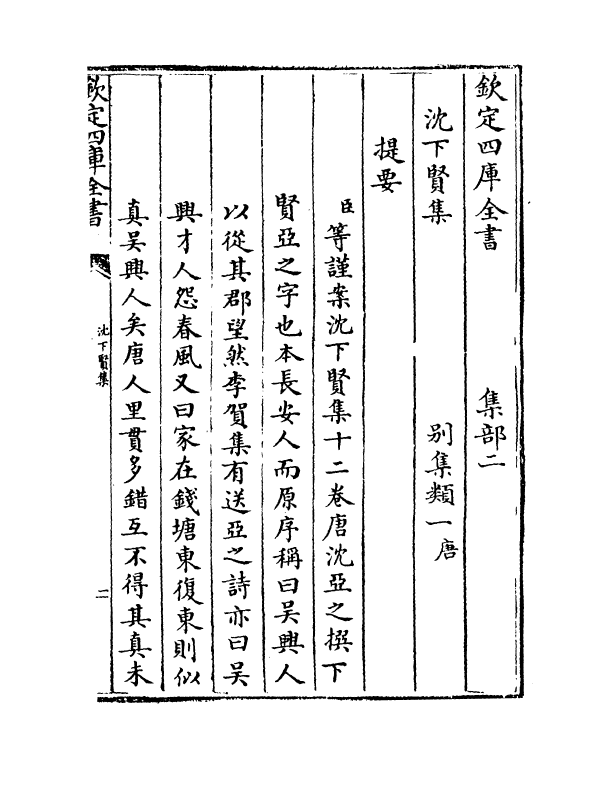 欽定四庫全書　集部二
沈下賢集　别集類一唐
提要
臣等謹案沈下賢集十二卷唐沈亞之撰下
賢亞之字也本長安人而原序稱曰吳興人
以從其郡望然李賀集有送亞之詩亦曰吳
興才人怨春風又曰家在錢塘東復東則似
真吳興人矣唐人里貫多錯互不得其真未
欽定四庫全書
沈下賢集
二